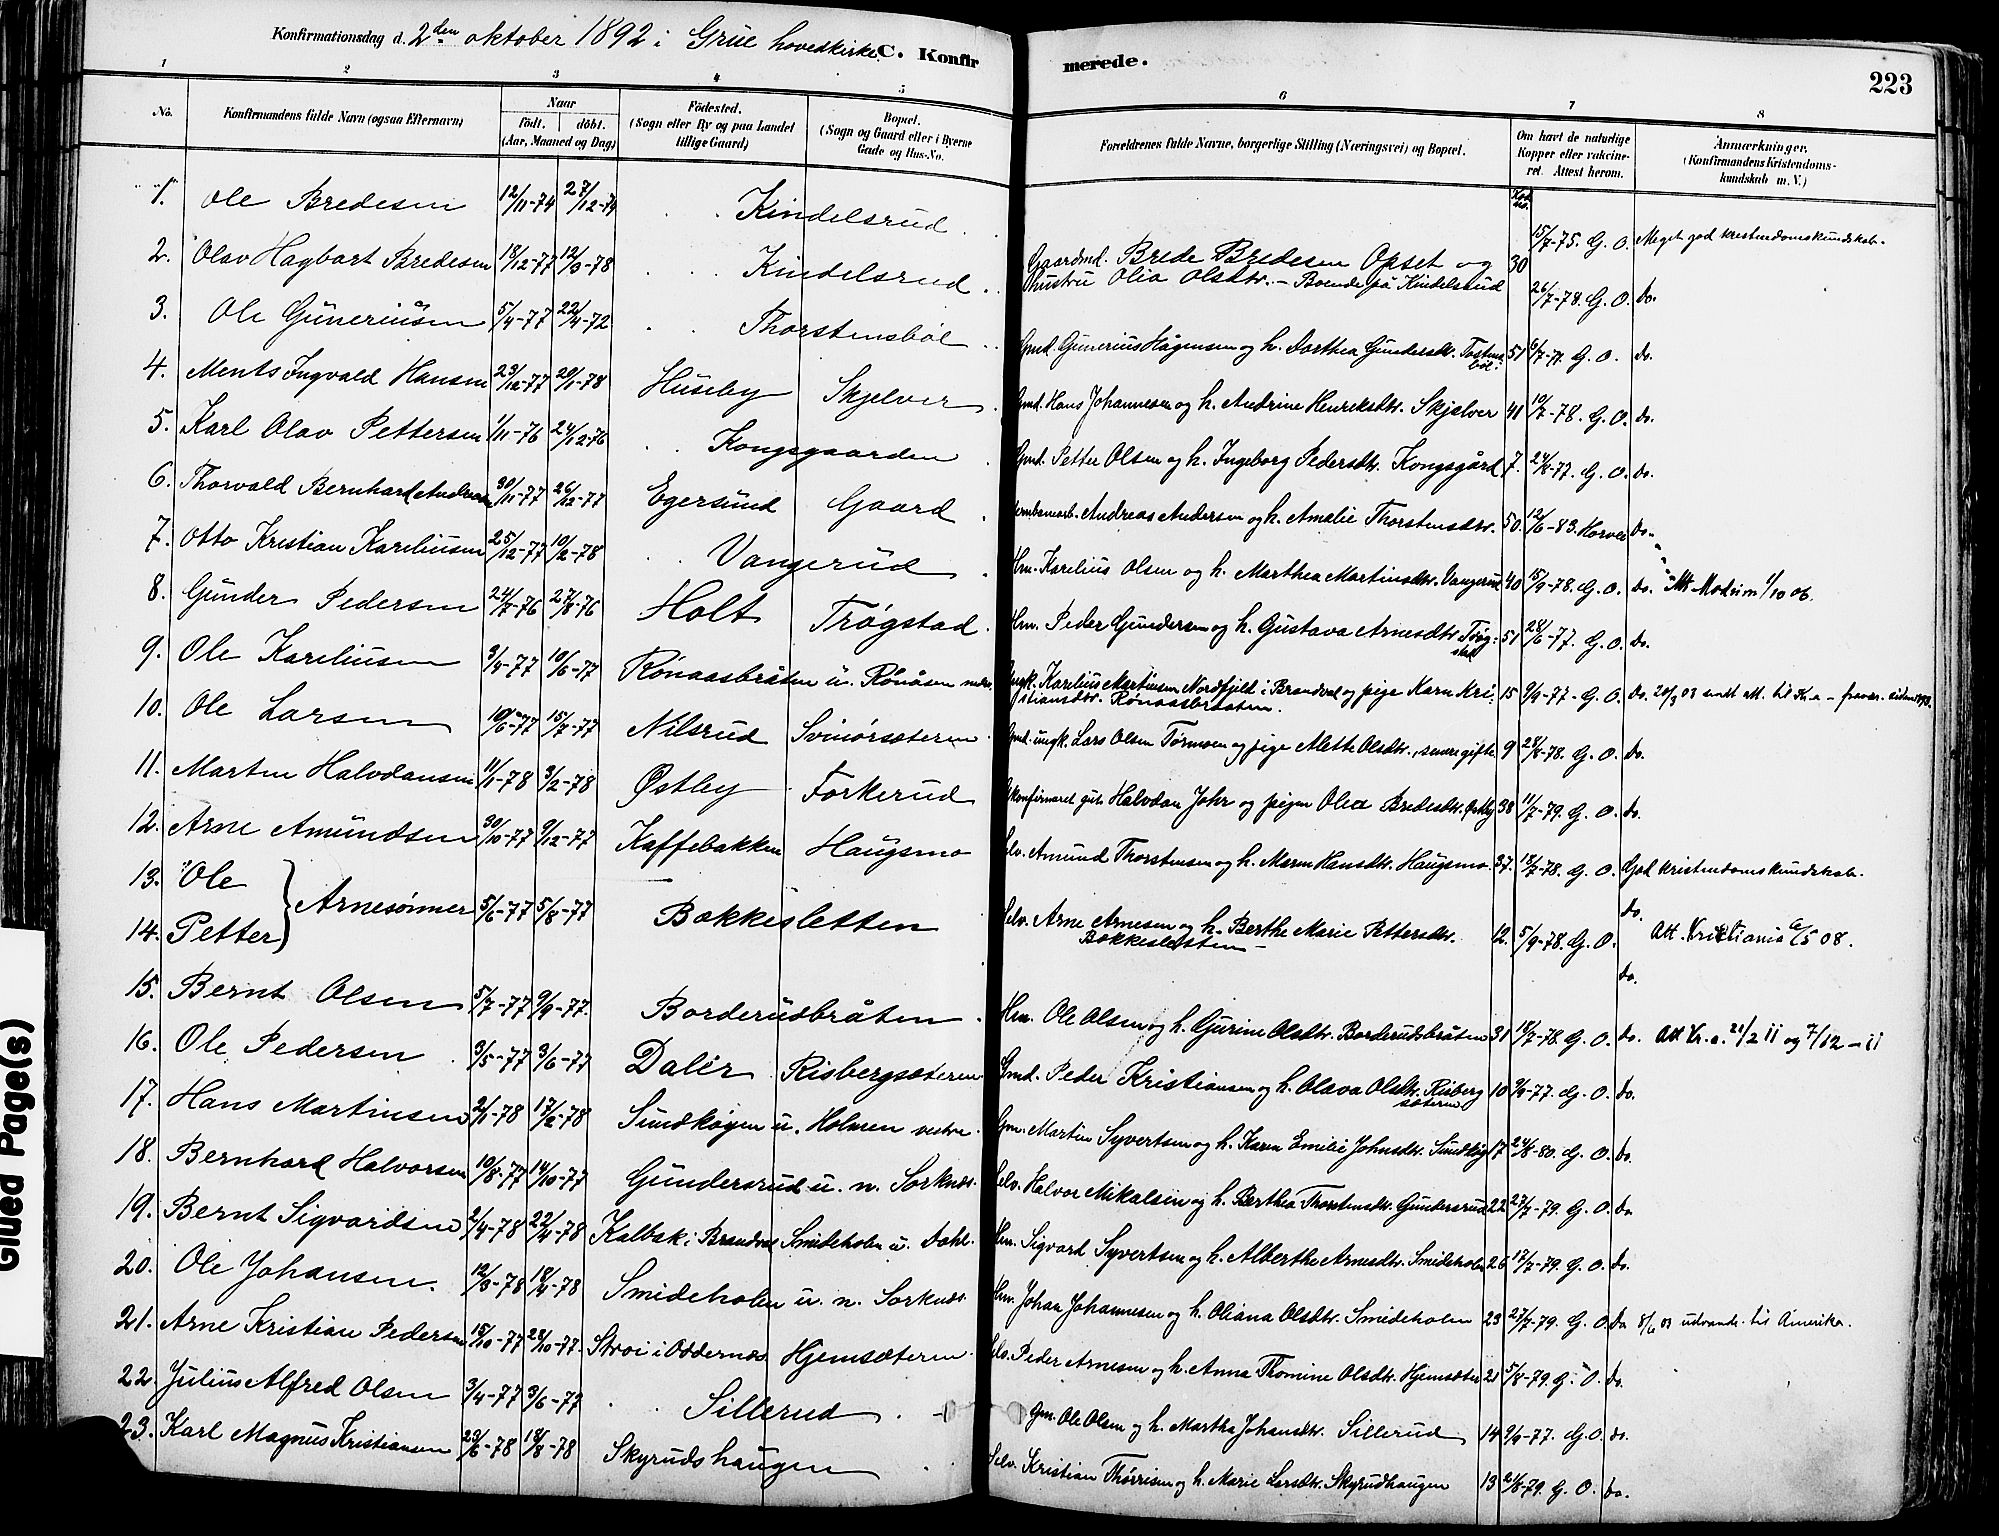 Konfirmationsdag d. 2den oktober 1892 i Grue hovedkirke C. Konfirmerede. 223
1 2 3 4 5 6 7 8
No. | Konfirmandens fulde Navn (ogsaa Efternavn) | Naar födt. döbt. (Aar, Maaned og Dag) | Födested. (Sogn eller By og paa Landet tillige Gaard) | Bopæl. (Sogn og Gaard eller i Byerne Gade og Hus-No. | Forældrenes fulde Navne, borgerlige Stilling (Næringsvei) og Bopæl. | Om havt de naturlige Kopper eller vakcineret. Attest herom. | Anmærkninger. (Konfirmandens Kristendomskundskab m. V.)
1. Ole Bredesen 12/11-74 27/12-74 Kindelsrud 15/7-75. G. O. Meget god kristendomskundskab.
2. Olav Hagbart Bredesen 18/12-77 12/3-78 Kindelsrud Gaardmd. Brede Bredesen Opset og hustru Olia Olsdtr. - Boende på Kindelsrud 30 26/7-78. G. O. do.
3. Ole Guneriusen 5/4-77 22/4-72 Thorstensböl Gmd. Gunerius Hågensen og h. Dorthea Gundersdtr. Tostensböl. 51 6/7-71. G. O. do.
4. Ments Ingvald Hansen 23/12-77 20/1-78 Huseby Skjelver Gmd. Hans Johannesen og h. Andrine Henriksdtr. Skjelver 41 10/7-78. G. O. do.
5. Karl Olav Pettersen 1/11-76 24/12-76 Kongsgaarden Gmd. Petter Olsen og h. Ingeborg Pedersdtr. Kongsgård 7. 24/8-77. G. O. do.
6. Thorvald Bernhard Andreasen 30/11-77 26/12-77 Egersund Gaard Jernbanearb. Andreas Andersen og h. Amalie Thorstensdtr. 50 12/6-83. Horver do.
7. Otto Kristian Kareliusen 25/12-77 10/2-78 Vangerud Hm. Karelius Olsen og h. Marthea Martinsdtr. Vangerud 40 15/9-78. G. O. do. Att. Modum 1/10 06.
8. Gunder Pedersen 24/7-76 27/8-76 Holt Trøgstad Hm. Peder Gundersen og h. Gustava Arnesdtr. Trøgstad 51 28/6-77. G. O. do.
9. Ole Kareliusen 3/4-77 10/6-77 Rönaasbråten u. Rönåsen nedre Ungk. Karelius Martinsen Nordfjeld i Brandval og pige Karn Kristiansdtr. Rönaasbraaten. 15 9/9-77. G. O. do. 20/3 03
10. Ole Larsen 10/6-77 15/7-77 Nilsrud Svinörsæteren Gmd. ungk. Lars Olsen Tørmoen og pige Mette Olsdtr., senere gifte 9 28/8-78. G. O. do.
11. Marten Halvdansen 11/1-78 3/2-78 Østby Forkerud Ukonfirmeret gut Halvdan Johr og pigen Olea Bredesdtr. Østby 38 11/7-79. G. O. do.
12. Arne Amundsen 30/10-77 9/12-77 Kaffebakken Haugsmo Selv. Amund Thorstensen og h. Maren Hansdtr. Haugsmo. 37. 18/7-78. G. O. God kristendomskundskab.
13. Ole } Arnesönner 5/6-77 5/8-77 Bækkesletten Selv. Arne Arnesen og h. Berthe Marie Pettersdtr. Bækkesletten 12. 5/9-78. G. O. do. Att. Kristiania 6/5 08.
14. Petter do.
15. Bernt Olsen 5/7-77 9/9-77. Borderudbråten Hm. Ole Olsen og h. Gurine Olsdtr. Borderudsbråten 31 18/7-78. G. O. do. Att. Kr.a. 21/2 11 og 7/12-11
16. Ole Pedersen 3/5-77 3/6-77 Dalér Risbergsæteren Gmd. Peder Kristiansen og h. Olava Olsdtr. Risbergsæteren 10 9/9-77. G. O. do.
17. Hans Martinsen 2/1-78 17/2-78 Sundkøgen u. Holmen vestre Gm. Martin Syvertsen og h. Karen Emilie Johnsdtr. Sundkøg 17 24/8-80. G. O. do.
18. Bernhard Halvorsen 10/8-77 14/10-77 Gundersrud u. n. Sorknæs Selv. Halvor Mikalsen og h. Berthea Thorstensdtr. Gundersrud 22 27/7-79. G. O. do
19. Bernt Sigvardsen 2/4-78 22/4-78 Kalbak i Brandval Smideholen u. Dahl. Hm. Sigvard Syvertsen og h. Alberthe Arnesdtr. Smideholen 26 17/7-79. G. O. do.
20. Ole Johansen. 12/3-78 18/4-78 Smideholen u. n. Sorknæs. Hm. Johan Johannesen og h. Oliana Olsdtr. Smideholen 23 27/7-79. G. O. do 8/6 03 udvandr. til Amerika.
21. Arne Kristian Pedersen 15/10-77 28/10-77. Stroi i Oddernæs Hjemsæteren Selv. Peder Arnesen og h. Anna Thomine Olsdtr. Hjemsæter 21 5/8-79. G. O. do.
22. Julius Alfred Olsen 3/4-77 3/6-77 Sillerud Gm. Ole Olsen og h. Martha Johansdtr. Sillerud 14 9/9-77. G. O. do.
23. Karl Magnus Kristiansen 23/6-78 18/8-78 Skyrudshaugen Selv. Kristian Thørrisen og h. Marie Larsdtr. Skyrudhaugen 13 21/8-79. G. O. do.
Glued Page(s)